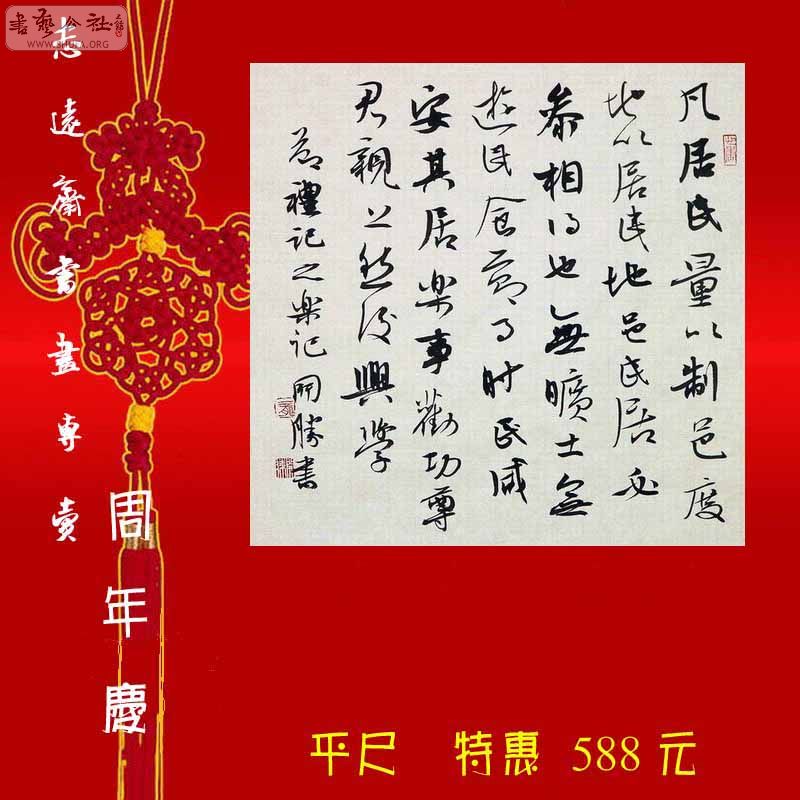 書藝公社
WWW.SHUFA.ORG
志遠齋書畫専賣
周年慶
凡居民量以制邑度
地以居民地邑民居必
參相得也無曠土無
遊民食節事时民咸
安其居樂事勸功尊
君親上然後興學
節禮記之樂記 開勝書
平尺 特惠 588元